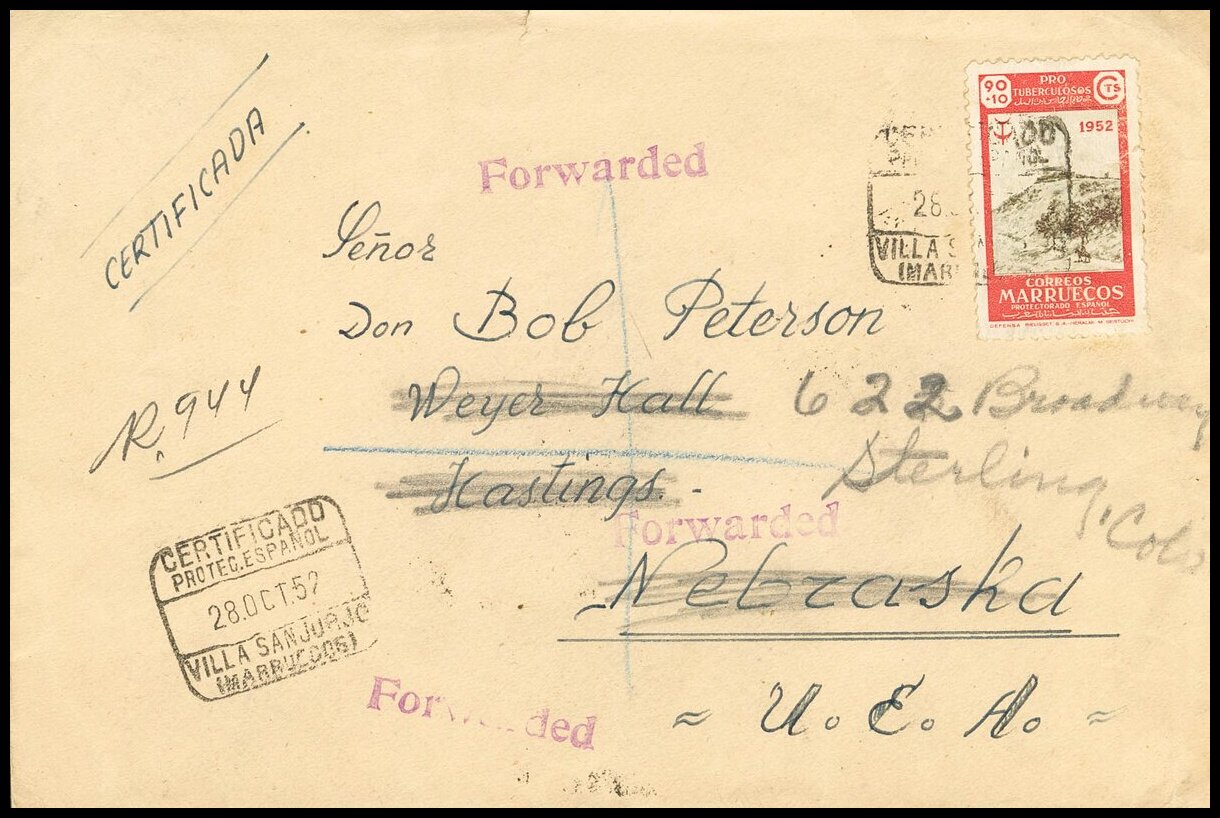 CERTIFICADA
Forwarded
90
+10
PRO
TUBERCULOSOS
CTS
1952
CORREOS
MARRUECOS
PROTECTORADO ESPAÑOL
28.
VILLA S
(MAR
Señor
Don Bob Peterson
Weyer Hall
622 Broadway
Hastings.-
Sterling, Colo
R. 944
Forwarded
Nebraska
CERTIFICADO
PROTEC.ESPAÑOL
28.OCT.52
VILLA SANJURJO
(MARRUECOS)
Forwarded
= U. E. A. =